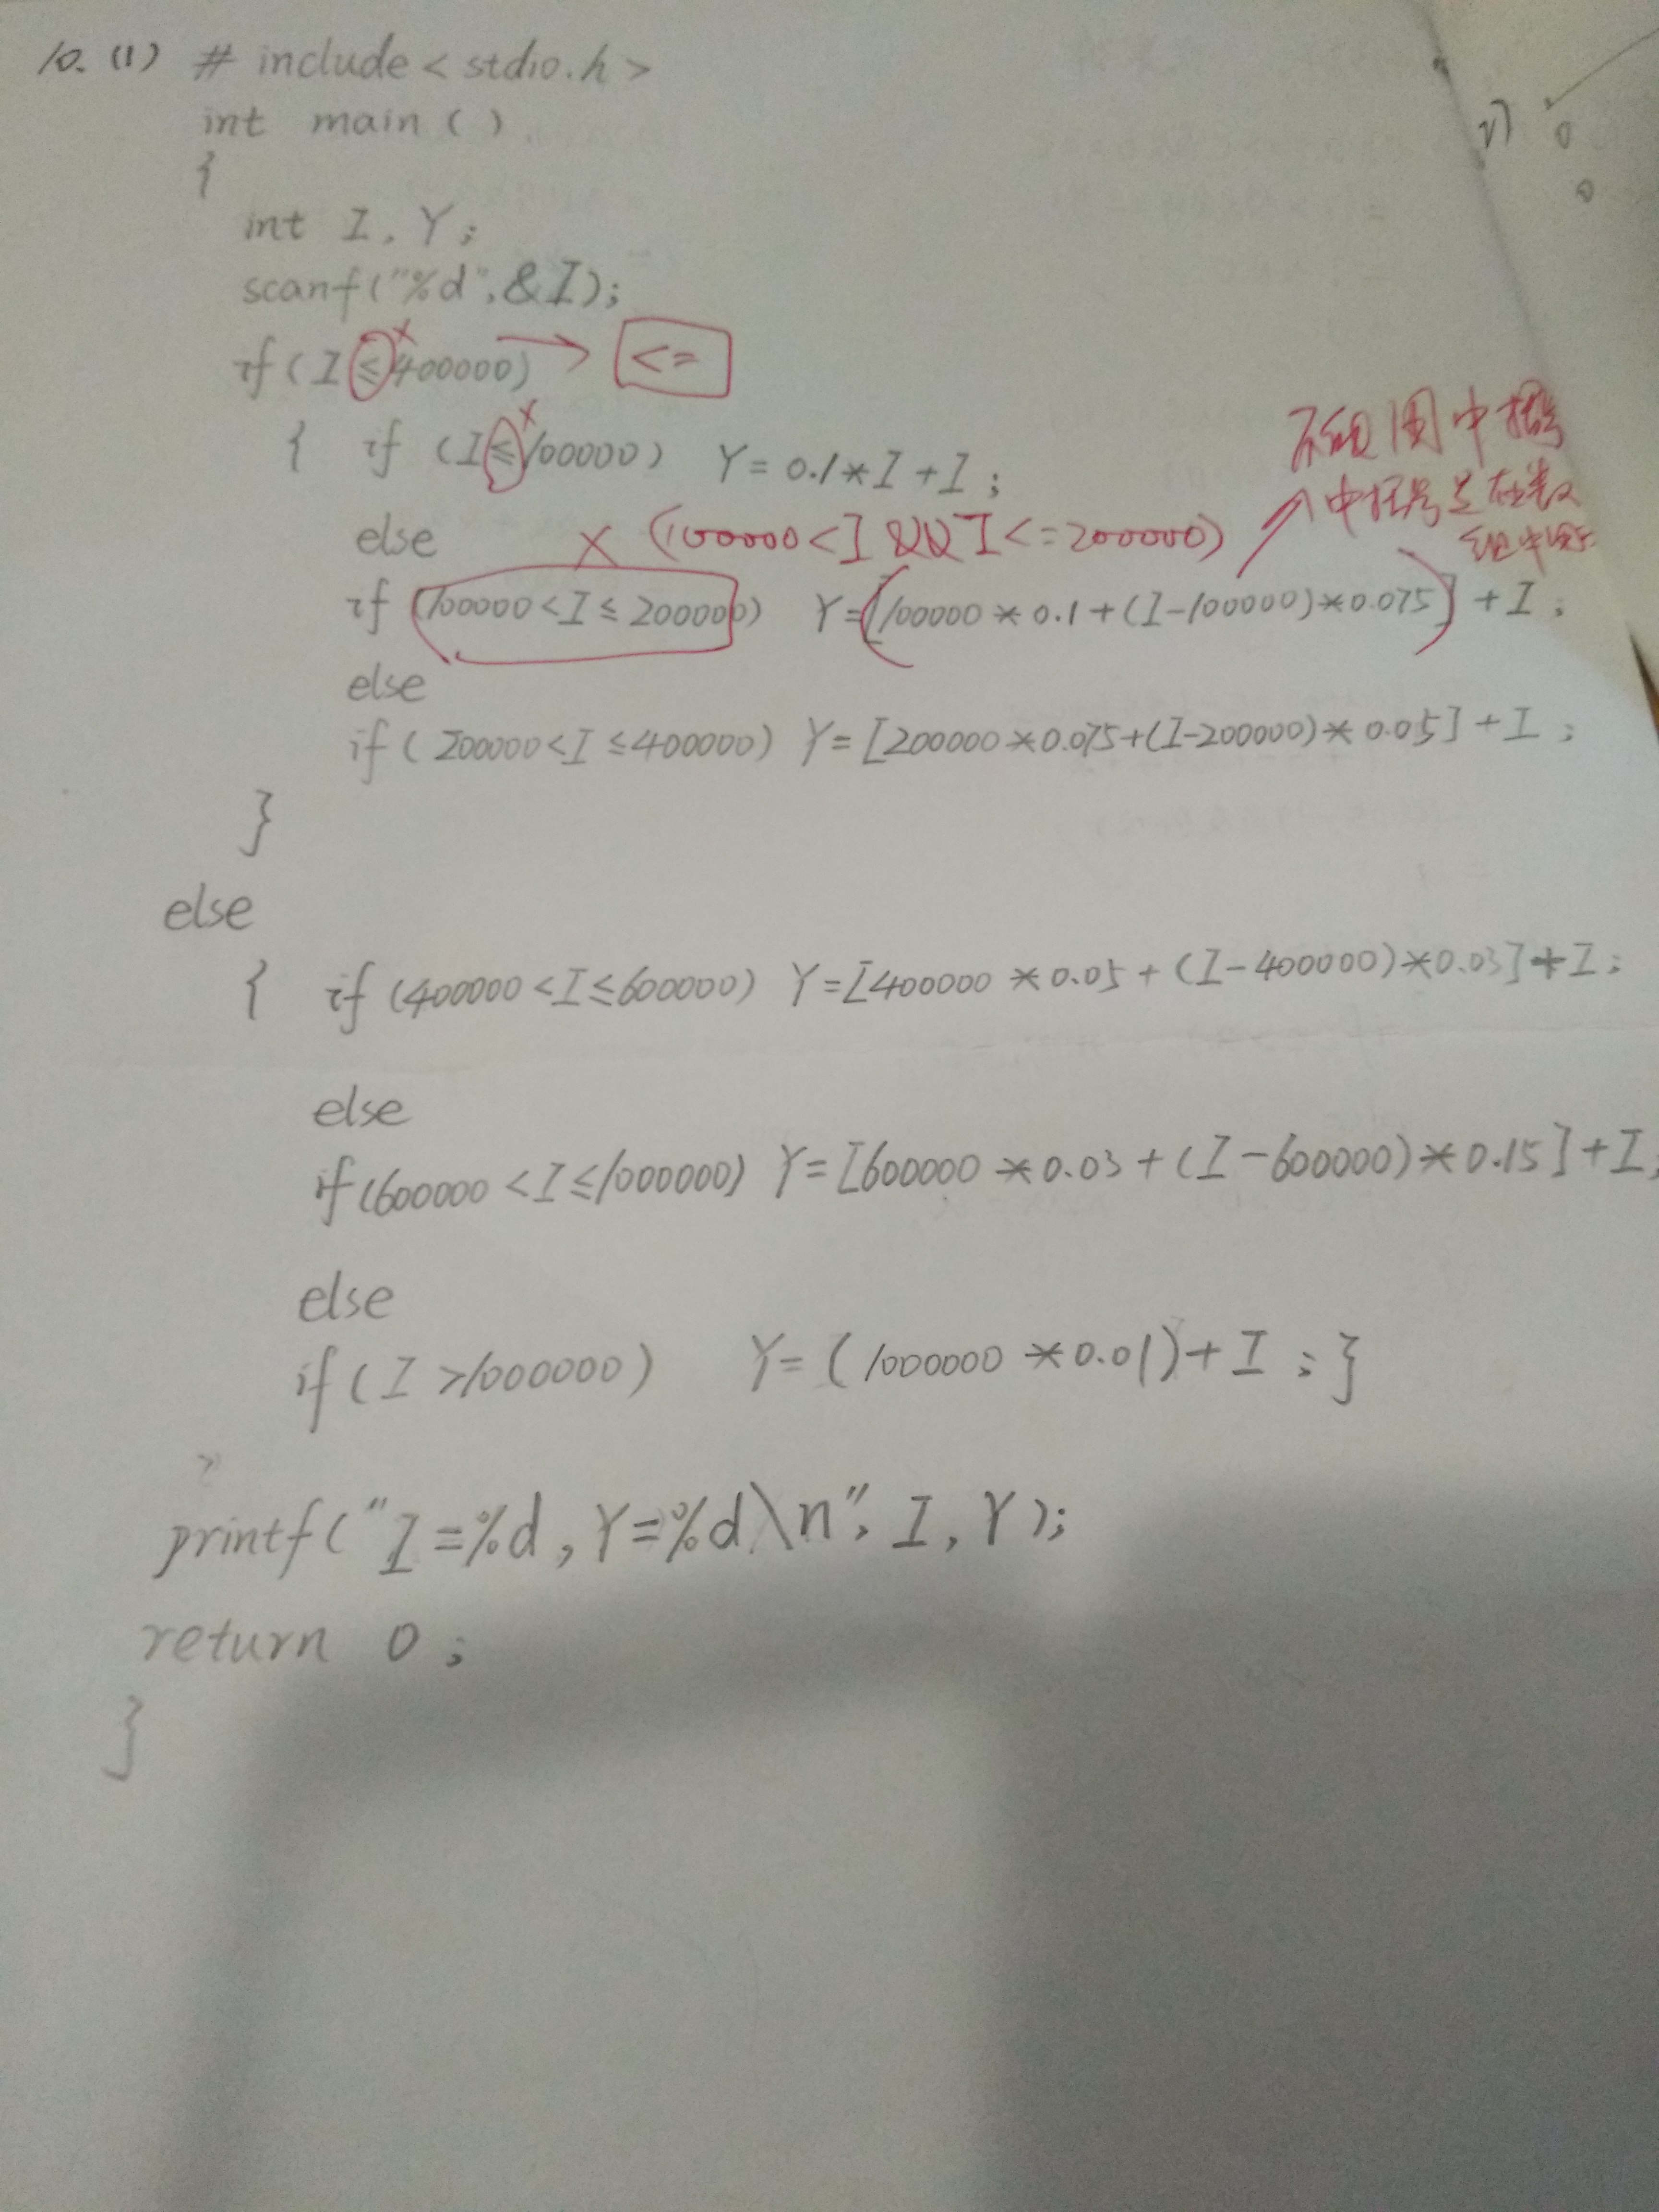 10. (1) # include < stdio.h >
int main ( )
{
int I, Y;
scanf("%d",&I);
if ( I ≤ 400000) → <=
{ if (I ≤ 100000) Y = 0.1*I + I ;
不能用中括号
中括号是在数
组中
else × (100000<I && I<=200000)
if (100000<I ≤ 200000) Y=[100000 * 0.1 + (I-100000)*0.075] + I ;
else
if ( 200000<I ≤400000) Y= [200000*0.075+(I-200000)* 0.05] + I ;
}
else
{ if (400000<I≤600000) Y=[400000 *0.05 + (I-400000)*0.03]+I;
else
if(600000 <I≤1000000) Y=[600000 *0.03 + (I-600000)*0.15]+I;
else
if ( I >1000000) Y= ( 1000000 *0.01)+ I ; }
printf("I=%d, Y=%d\n", I, Y);
return 0 ;
}
2)
0
0